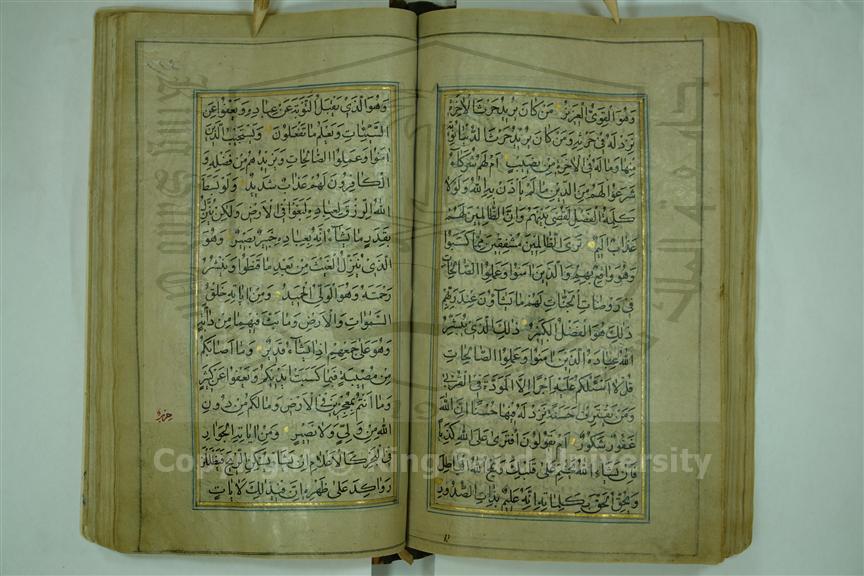 وهو القوي العزيز من كان يريد حرث الآخرة
نزد له في حرثه ومن كان يريد حرث الدنيا نؤته
منها وما له في الآخرة من نصيب أم لهم شركاء
شرعوا لهم من الدين ما لم يأذن به الله ولولا
كلمة الفصل لقضي بينهم وإن الظالمين لهم
عذاب أليم ترى الظالمين مشفقين مما كسبوا
وهو واقع بهم والذين آمنوا وعملوا الصالحات
في روضات الجنات لهم ما يشاؤن عند ربهم
ذلك هو الفضل الكبير ذلك الذي يبشر
الله عباده الذين آمنوا وعملوا الصالحات
قل لا أسئلكم عليه أجرا إلا المودة في القربى
ومن يقترف حسنة نزد له فيها حسنا إن الله
غفور شكور أم يقولون افترى على الله كذبا
فإن يشاء الله يختم على قلبك ويمح الله الباطل
ويحق الحق بكلماته إنه عليم بذات الصدور
وهو الذي يقبل التوبة عن عباده ويعفوا عن
السيئات ويعلم ما تفعلون ويستجيب الذين
آمنوا وعملوا الصالحات ويزيدهم من فضله و
الكافرون لهم عذاب شديد ولو بسط
الله الرزق لعباده لبغوا في الأرض ولكن ينزل
بقدر ما يشاء إنه بعباده خبير بصير وهو
الذي ينزل الغيث من بعد ما قنطوا وينشر
رحمته وهو الولي الحميد ومن آياته خلق
السموات والأرض وما بث فيهما من دابة
وهو على جمعهم إذا يشاء قدير وما أصابكم
من مصيبة فبما كسبت أيديكم ويعفوا عن كثير
وما أنتم بمعجزين في الأرض وما لكم من دون
الله من ولي ولا نصير ومن آياته الجوار
في البحر كالأعلام إن يشأ يسكن الريح فيظللن
رواكد على ظهره إن في ذلك لآيات
Copyright © King Saud University